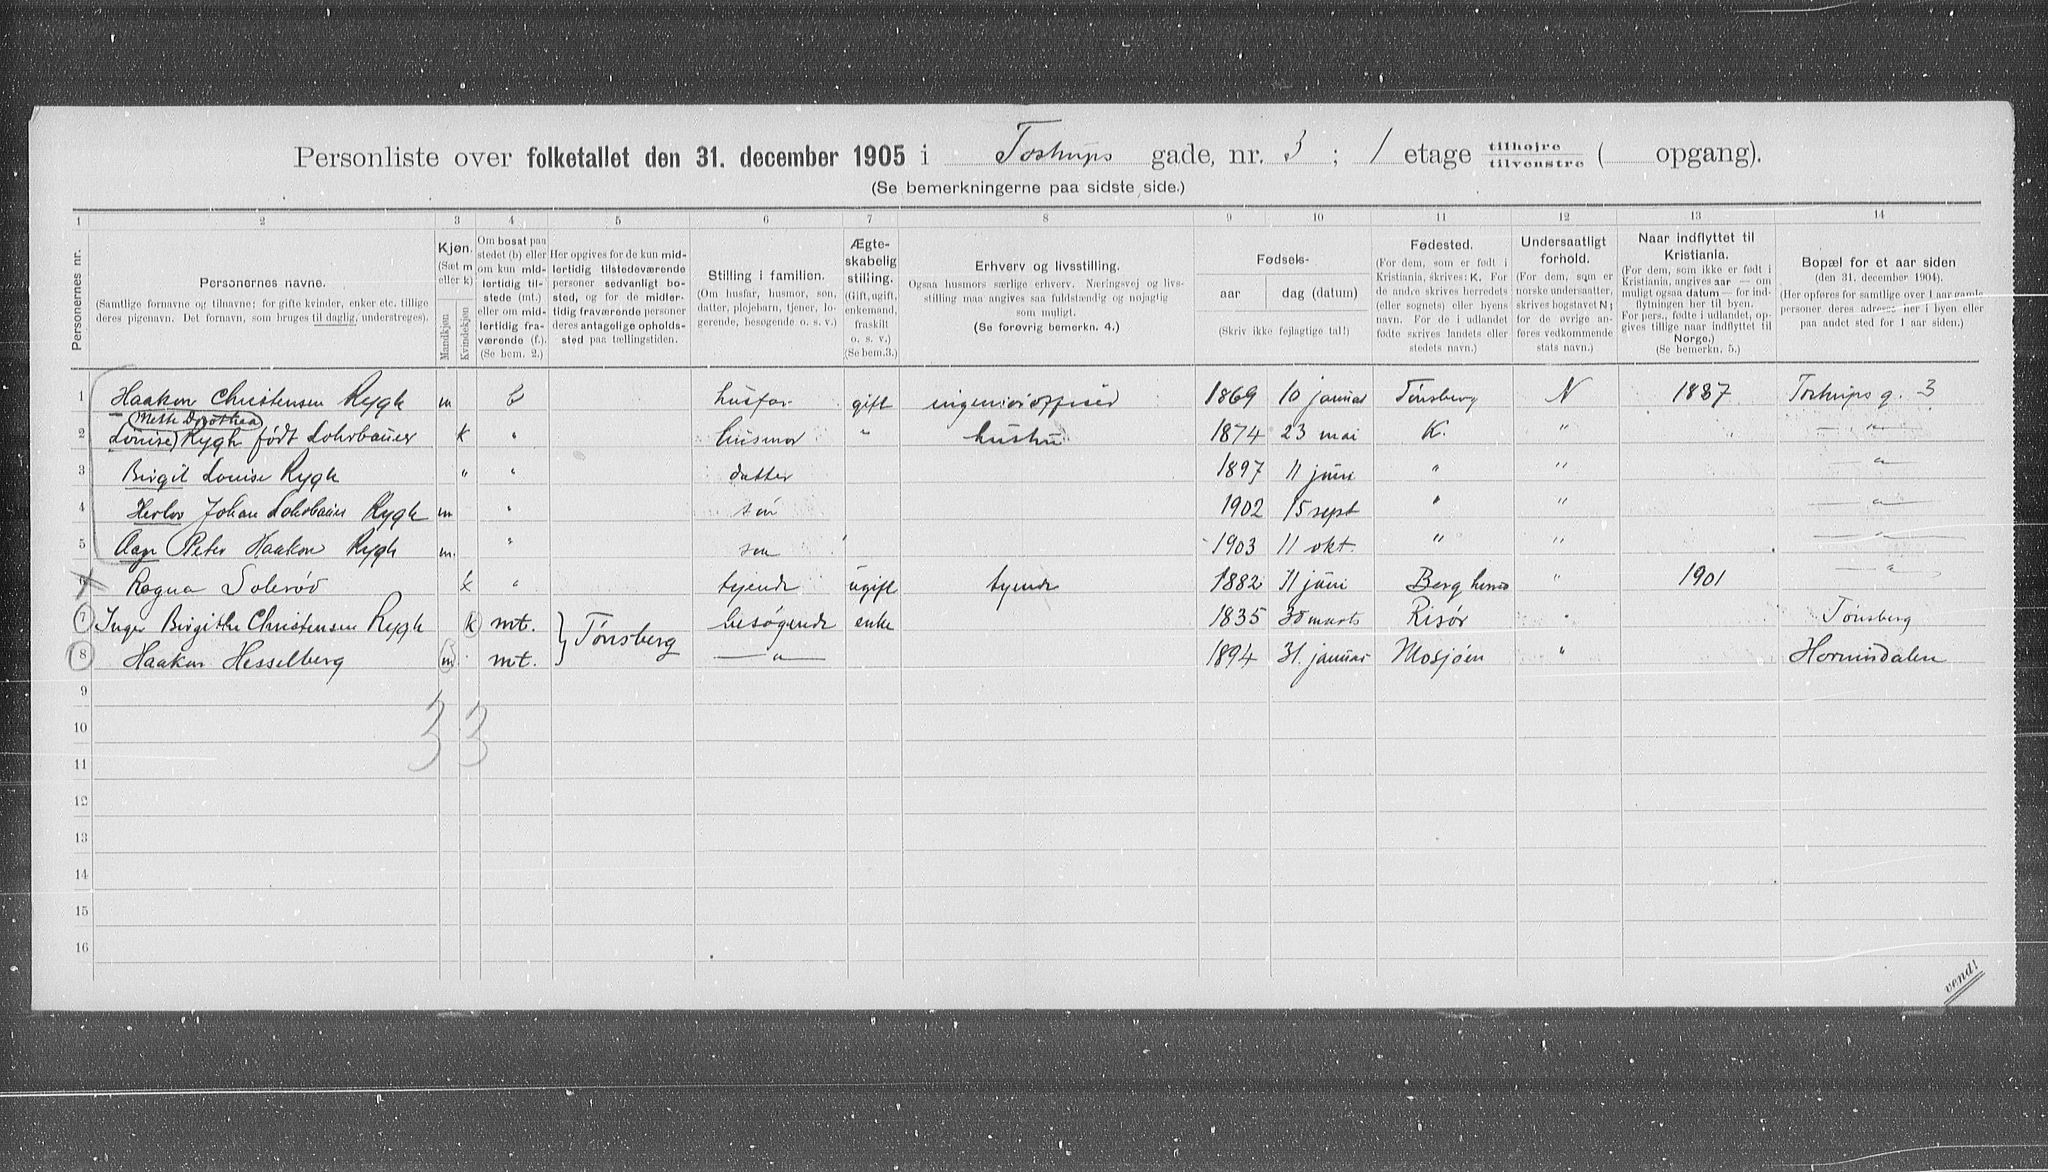 Personliste over folketallet den 31. december 1905 i Tostrups gade, nr. 3 ; 1 etage tilhøjre tilvenstre ( opgang).
(Se bemerkningerne paa sidste side.)
1 2 3 4 5 6 7 8 9 10 11 12 13 14
Personernes nr.
Personernes navne.
(Samtlige fornavne og tilnavne; for gifte kvinder, enker etc. tillige
deres pigenavn. Det fornavn, som bruges til daglig, understreges).
Kjøn.
(Sæt m
eller k)
Mandkjøn
Kvindekjøn
Om bosat paa
stedet (b) eller
om kun mid-
lertidig til-
stede (mt.)
eller om mid-
lertidig fra-
værende (f.).
(Se bem. 2.)
Her opgives for de kun mid-
lertidig tilstedeværende
personer sedvanlig bo-
sted, og for de midler-
tidig fraværende personer
deres antagelige opholds-
sted paa tællingstiden.
Stilling i familien.
(Om husfar, husmor, søn,
datter, plejebarn, tjener, lo-
gerende, besøgende o. s. v.)
Ægte-
skabelig
stilling.
(Gift, ugift,
enkemand,
fraskilt
o. s. v.)
(Se bem.3.)
Erhverv og livsstilling.
Ogsaa husmors særlige erhverv. Næringsvej og livs-
stilling maa angives saa fuldstændig og nøjagtig
som muligt.
(Se forøvrig bemerkn. 4.)
Fødsels-
aar
dag (datum)
(Skriv ikke fejlagtige tal!)
Fødested.
(For dem, som er født i
Kristiania, skrives: K. For
de andre skrives herredets
(eller sognets) eller byens
navn. For de i udlandet
fødte skrives landets eller
stedets navn.)
Undersaatligt
forhold.
(For dem, som er
norske undersaatter,
skrives bogstavet N;
for de øvrige an-
føres vedkommende
stats navn.)
Naar indflyttet til
Kristiania.
(For dem, som ikke er født i
Kristiania, angives aar — om
muligt ogsaa datum — for ind-
flytningen her til byen.
For pers., fødte i udlandet, op-
gives tillige naar indflyttet til
Norge.)
(Se bemerkn. 5.)
Bopæl for et aar siden
(den 31. december 1904).
(Her opføres for samtlige over 1 aar gamle
personer deres adresse her i byen eller
paa andet sted for 1 aar siden.)
1 Haakon Christensen Rygh m b husfar gift ingeniørofficer 1869 10 januar Tønsberg N 1887 Tostrups g. 3
Mette Dorothea
2 Louise Rygh født Lohrbauer k " husmor " hustru 1874 23 mai K. " — " —
3 Birgit Louise Rygh " " datter 1897 11 juni " " — " —
4 Herlov Johan Lohrbauer Rygh m " søn 1902 15 sept " " — " —
5 Aage Peter Haakon Rygh m. " søn 1903 11 okt. " " — " —
6 Ragna Solerød k " tjende ugift tyende 1882 11 juni Berg herred " 1901 — " —
7 Inger Birgithe Christensen Rygh k mt. } Tønsberg besøgende enke 1835 30 marts Risør " Tønsberg
8 Haakon Hesselberg m mt. — " — 1894 31. januar Mosjøen " Hornindalen
9
3 3
10
11
12
13
14
15
16
vend!